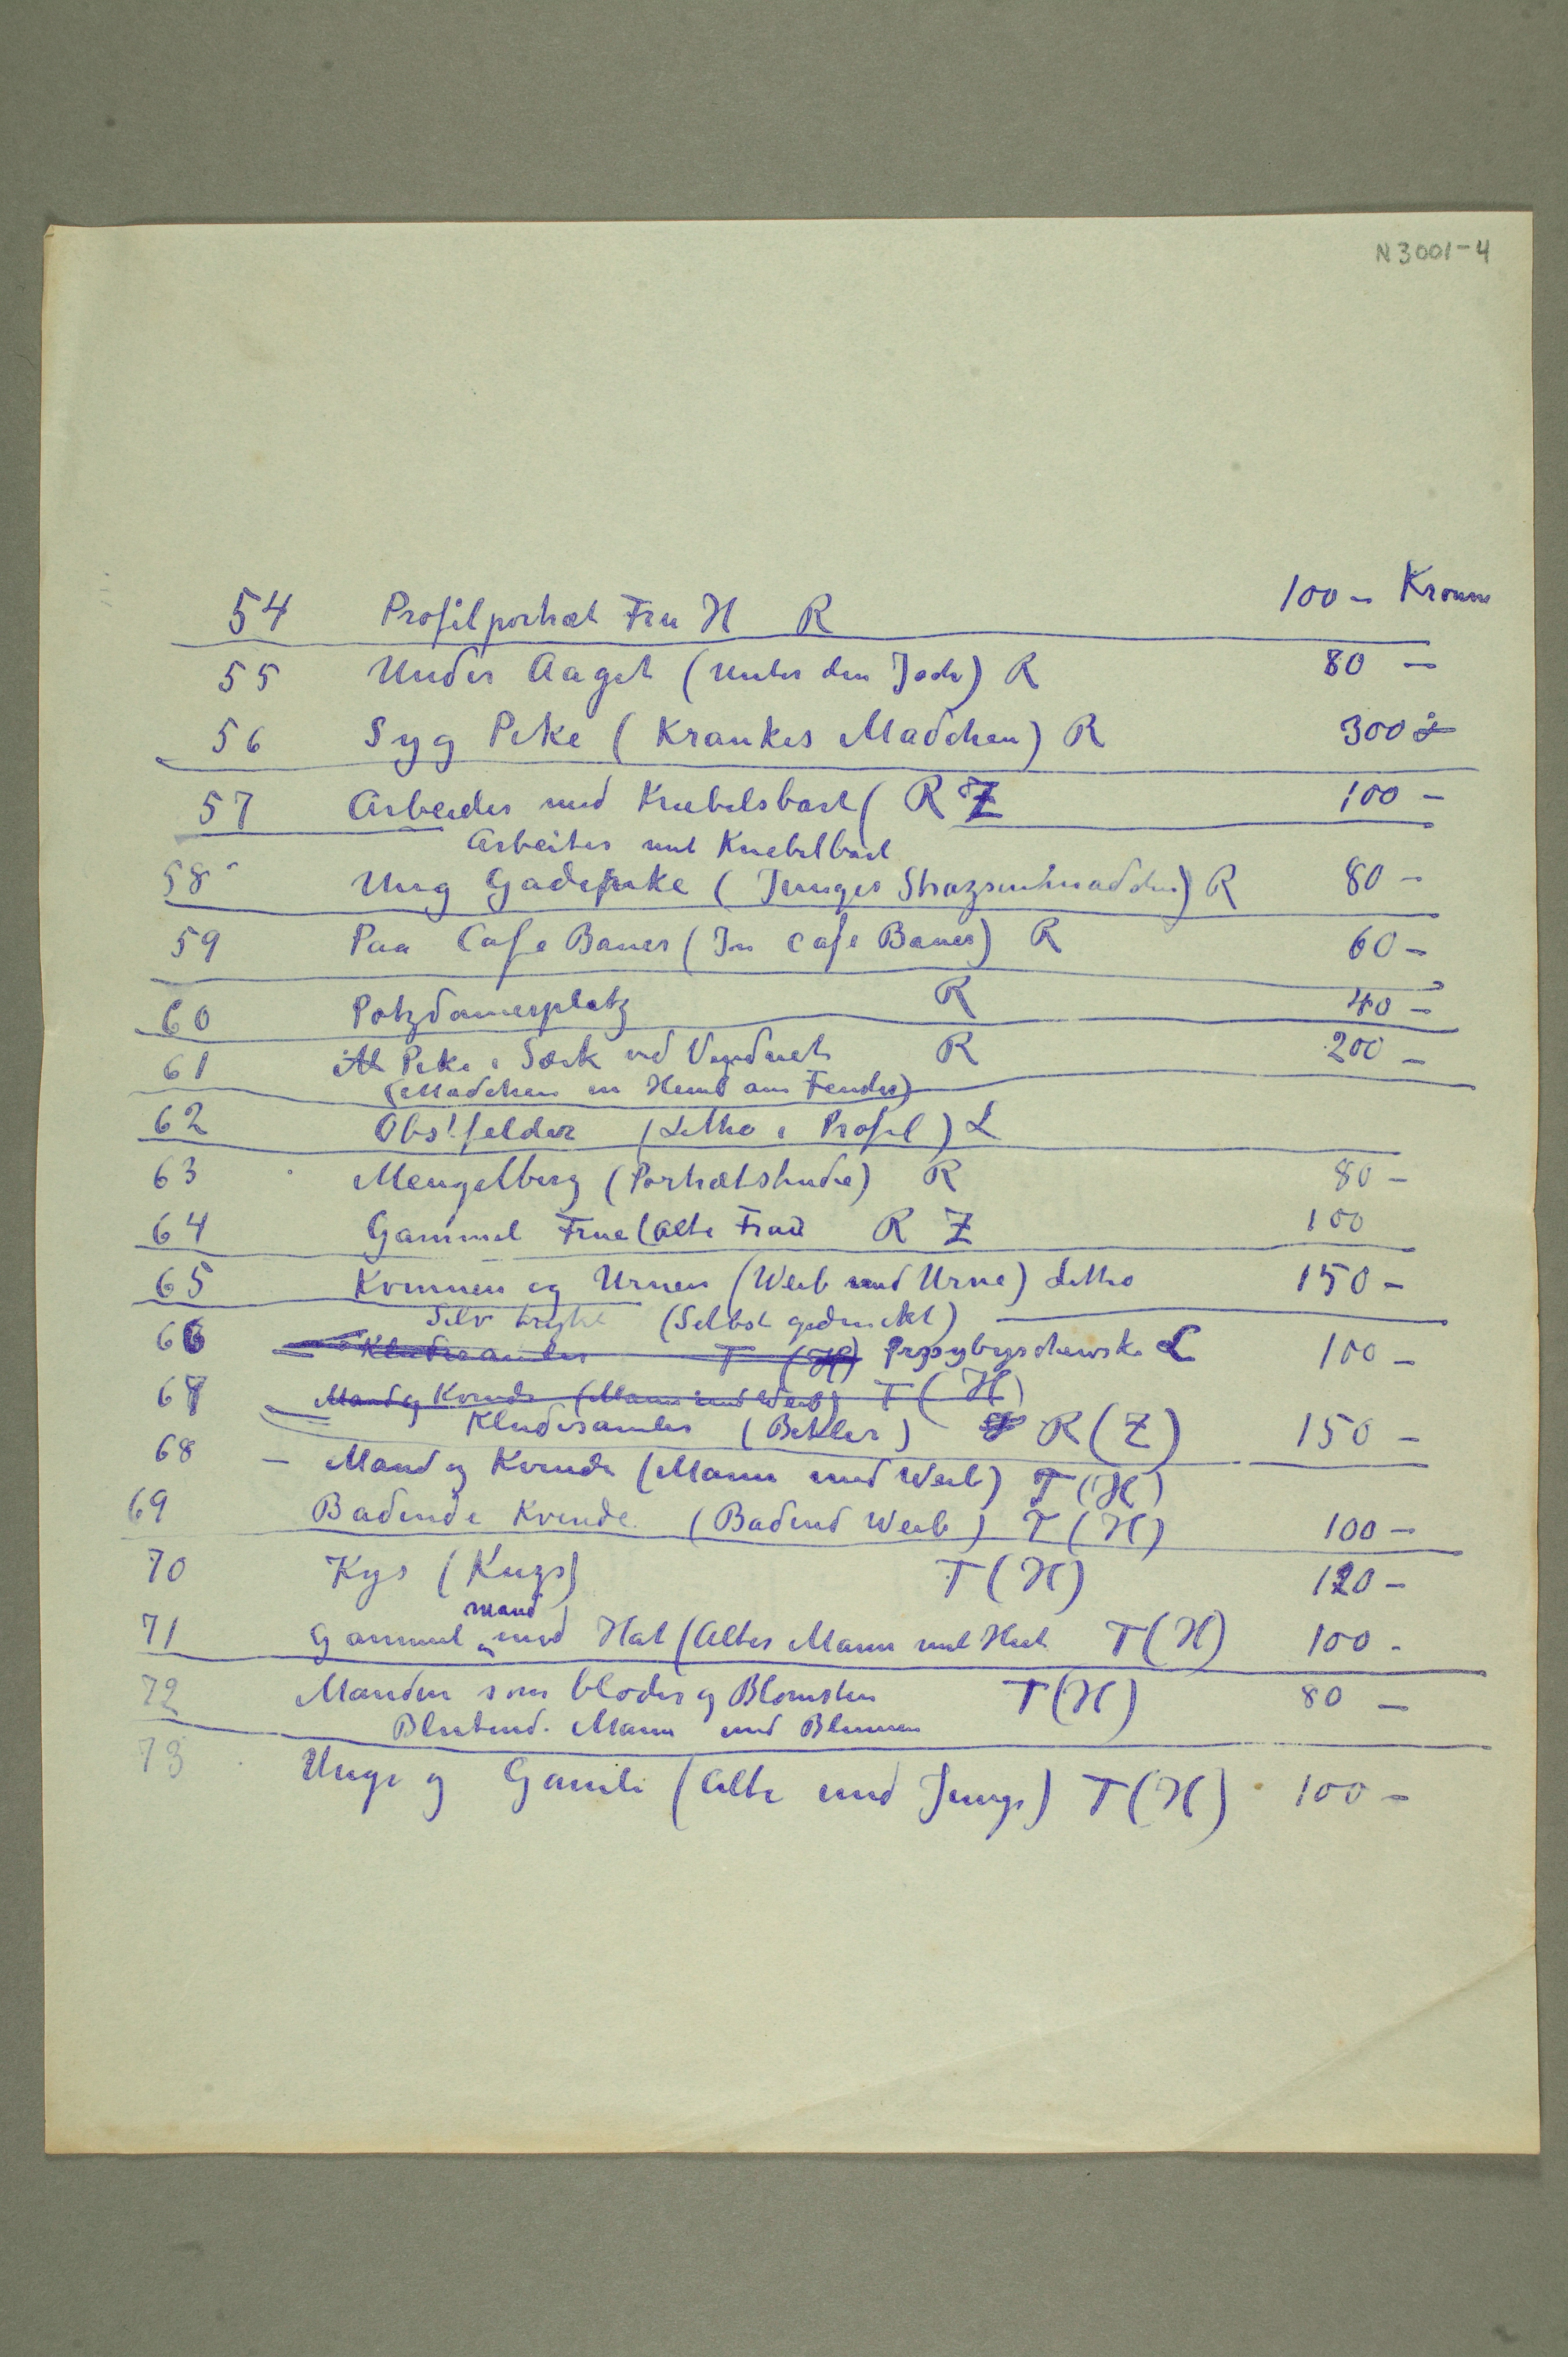 N 3001-4
54 Profilportræt Fru H R 100 - Kroner
55 Under Aaget (Unter den Joch) R 80 -
56 Syg Pike (Krankes Madchen) R 300
57 Arbeider med Knebelsbart ( R Z 100 -
Arbeiter mit Knebelbart
58 Ung Gadepike ( Junges Strazsenmadchen) R 80 -
59 Paa Cafe Bauer (In Cafe Bauer) R 60 -
60 Potzdamerplatz R 40 -
61 Pike i Særk ved Vinduet R 200 -
(Madchen in Hemd am Fenster)
62 Obstfelder (Litho i Profil) L
63 Mengelberg (Portrætstudie) R 80 -
64 Gammel Frue (Alte Frau R Z 100
65 Kvinnen og Urnen (Weib und Urne) Litho 150 -
Selv trykt (Selbst gedruckt)
66 Kludesamler T (H) Prpzybyschewski L 100 -
67 Mand og Kvinde (Mann und Weib) T (H)
Kludesamler (Bettler) R (Z) 150 -
68 - Mand og Kvinde (Mann und Weib) T (H)
69 Badende Kvinde (Badend Weib) T (H) 100 -
70 Kys (Kuzs) T (H) 120 -
mand
71 Gammel med Hat (Alter Mann mit Hut T (H) 100 -
72 Manden som bløder og Blomsten T (H) 80 -
Blutend. Mann und Blumen
73 Unge og Gamle (Alte und Junge) T (H) 100 -